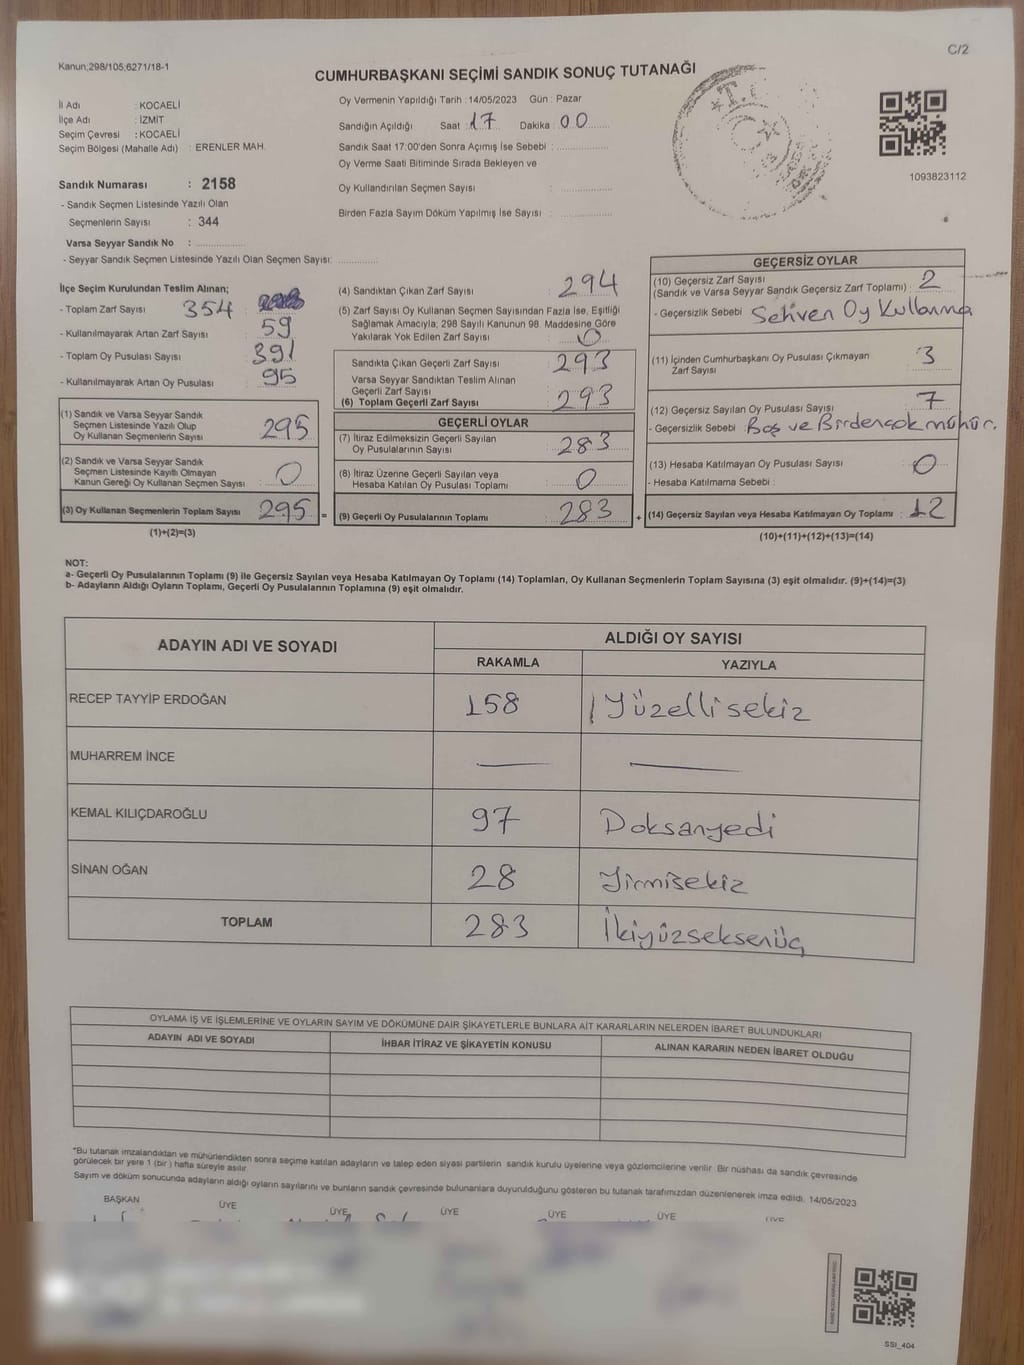 C/2
Kanun;298/105,6271/18-1
CUMHURBAŞKANI SEÇİMİ SANDIK SONUÇ TUTANAĞI
İl Adı : KOCAELİ
İlçe Adı : İZMİT
Seçim Çevresi : KOCAELİ
Seçim Bölgesi (Mahalle Adı) : ERENLER MAH.
Sandık Numarası : 2158
- Sandık Seçmen Listesinde Yazılı Olan
Seçmenlerin Sayısı : 344
Varsa Seyyar Sandık No :
- Seyyar Sandık Seçmen Listesinde Yazılı Olan Seçmen Sayısı:
Oy Vermenin Yapıldığı Tarih : 14/05/2023 Gün : Pazar
Sandığın Açıldığı Saat : 17 Dakika : 00
Sandık Saat 17:00'den Sonra Açımış İse Sebebi :
Oy Verme Saati Bitiminde Sırada Bekleyen ve
Oy Kullandırılan Seçmen Sayısı :
Birden Fazla Sayım Döküm Yapılmış İse Sayısı :
1093823112
İlçe Seçim Kurulundan Teslim Alınan;
- Toplam Zarf Sayısı 354 :
- Kullanılmayarak Artan Zarf Sayısı : 59
- Toplam Oy Pusulası Sayısı : 391
- Kullanılmayarak Artan Oy Pusulası : 95
(1) Sandık ve Varsa Seyyar Sandık
Seçmen Listesinde Yazılı Olup
Oy Kullanan Seçmenlerin Sayısı : 295
(2) Sandık ve Varsa Seyyar Sandık
Seçmen Listesinde Kayıtlı Olmayan
Kanun Gereği Oy Kullanan Seçmen Sayısı : 0
(3) Oy Kullanan Seçmenlerin Toplam Sayısı : 295 =
(1)+(2)=(3)
(4) Sandıktan Çıkan Zarf Sayısı : 294
(5) Zarf Sayısı Oy Kullanan Seçmen Sayısından Fazla İse, Eşitliği
Sağlamak Amacıyla; 298 Sayılı Kanunun 98. Maddesine Göre
Yakılarak Yok Edilen Zarf Sayısı : 0
Sandıkta Çıkan Geçerli Zarf Sayısı : 293
Varsa Seyyar Sandıktan Teslim Alınan
Geçerli Zarf Sayısı :
(6) Toplam Geçerli Zarf Sayısı : 293
GEÇERLİ OYLAR
(7) İtiraz Edilmeksizin Geçerli Sayılan
Oy Pusulalarının Sayısı : 283
(8) İtiraz Üzerine Geçerli Sayılan veya
Hesaba Katılan Oy Pusulası Toplamı : 0
(9) Geçerli Oy Pusulalarının Toplamı : 283 +
GEÇERSİZ OYLAR
(10) Geçersiz Zarf Sayısı : 2
(Sandık ve Varsa Seyyar Sandık Geçersiz Zarf Toplamı)
- Geçersizlik Sebebi : Sehven Oy Kullanma
(11) İçinden Cumhurbaşkanı Oy Pusulası Çıkmayan
Zarf Sayısı : 3
(12) Geçersiz Sayılan Oy Pusulası Sayısı : 7
- Geçersizlik Sebebi : Boş ve Birdençok mühür.
(13) Hesaba Katılmayan Oy Pusulası Sayısı : 0
- Hesaba Katılmama Sebebi :
(14) Geçersiz Sayılan veya Hesaba Katılmayan Oy Toplamı : 12
(10)+(11)+(12)+(13)=(14)
NOT:
a- Geçerli Oy Pusulalarının Toplamı (9) ile Geçersiz Sayılan veya Hesaba Katılmayan Oy Toplamı (14) Toplamları, Oy Kullanan Seçmenlerin Toplam Sayısına (3) eşit olmalıdır. (9)+(14)=(3)
b- Adayların Aldığı Oyların Toplamı, Geçerli Oy Pusulalarının Toplamına (9) eşit olmalıdır.
ADAYIN ADI VE SOYADI ALDIĞI OY SAYISI
RAKAMLA YAZIYLA
RECEP TAYYİP ERDOĞAN 158 Yüzellisekiz
MUHARREM İNCE — —
KEMAL KILIÇDAROĞLU 97 Doksanyedi
SİNAN OĞAN 28 Yirmisekiz
TOPLAM 283 İkiyüzseksenüç
OYLAMA İŞ VE İŞLEMLERİNE VE OYLARIN SAYIM VE DÖKÜMÜNE DAİR ŞİKAYETLERLE BUNLARA AİT KARARLARIN NELERDEN İBARET BULUNDUKLARI
ADAYIN ADI VE SOYADI İHBAR İTİRAZ VE ŞİKAYETİN KONUSU ALINAN KARARIN NEDEN İBARET OLDUĞU
*Bu tutanak imzalandıktan ve mühürlendikten sonra seçime katılan adayların ve talep eden siyasi partilerin sandık kurulu üyelerine veya gözlemcilerine verilir. Bir nüshası da sandık çevresinde
görülecek bir yere 1 (bir) hafta süreyle asılır.
Sayım ve döküm sonucunda adayların aldığı oyların sayılarını ve bunların sandık çevresinde bulunanlara duyurulduğunu gösteren bu tutanak tarafımızdan düzenlenerek imza edildi. 14/05/2023
BAŞKAN ÜYE ÜYE ÜYE ÜYE ÜYE ÜYE
SSI_404